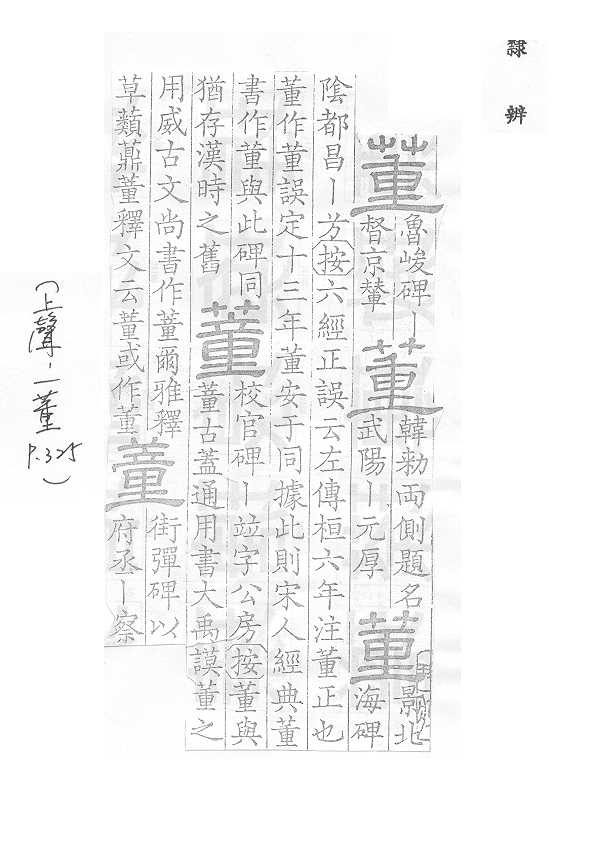 隸辨
董魯峻碑丨
督京輦
董韓勑兩側題名
武陽丨元厚
董景北
海碑
陰都昌丨按六經正誤云左傳桓六年注董正也
董作蕫誤定十三年董安于同據此則宋人經典董
書作董與此碑同
猶存漢時之舊
董校官碑丨竝字公房按董與
蕫古蓋通用書大禹謨董之
用威古文尚書作蕫爾雅釋
草蘱薡蕫釋文云蕫或作董
董街彈碑以
府丞丨察
(上聲-一董 P.325)